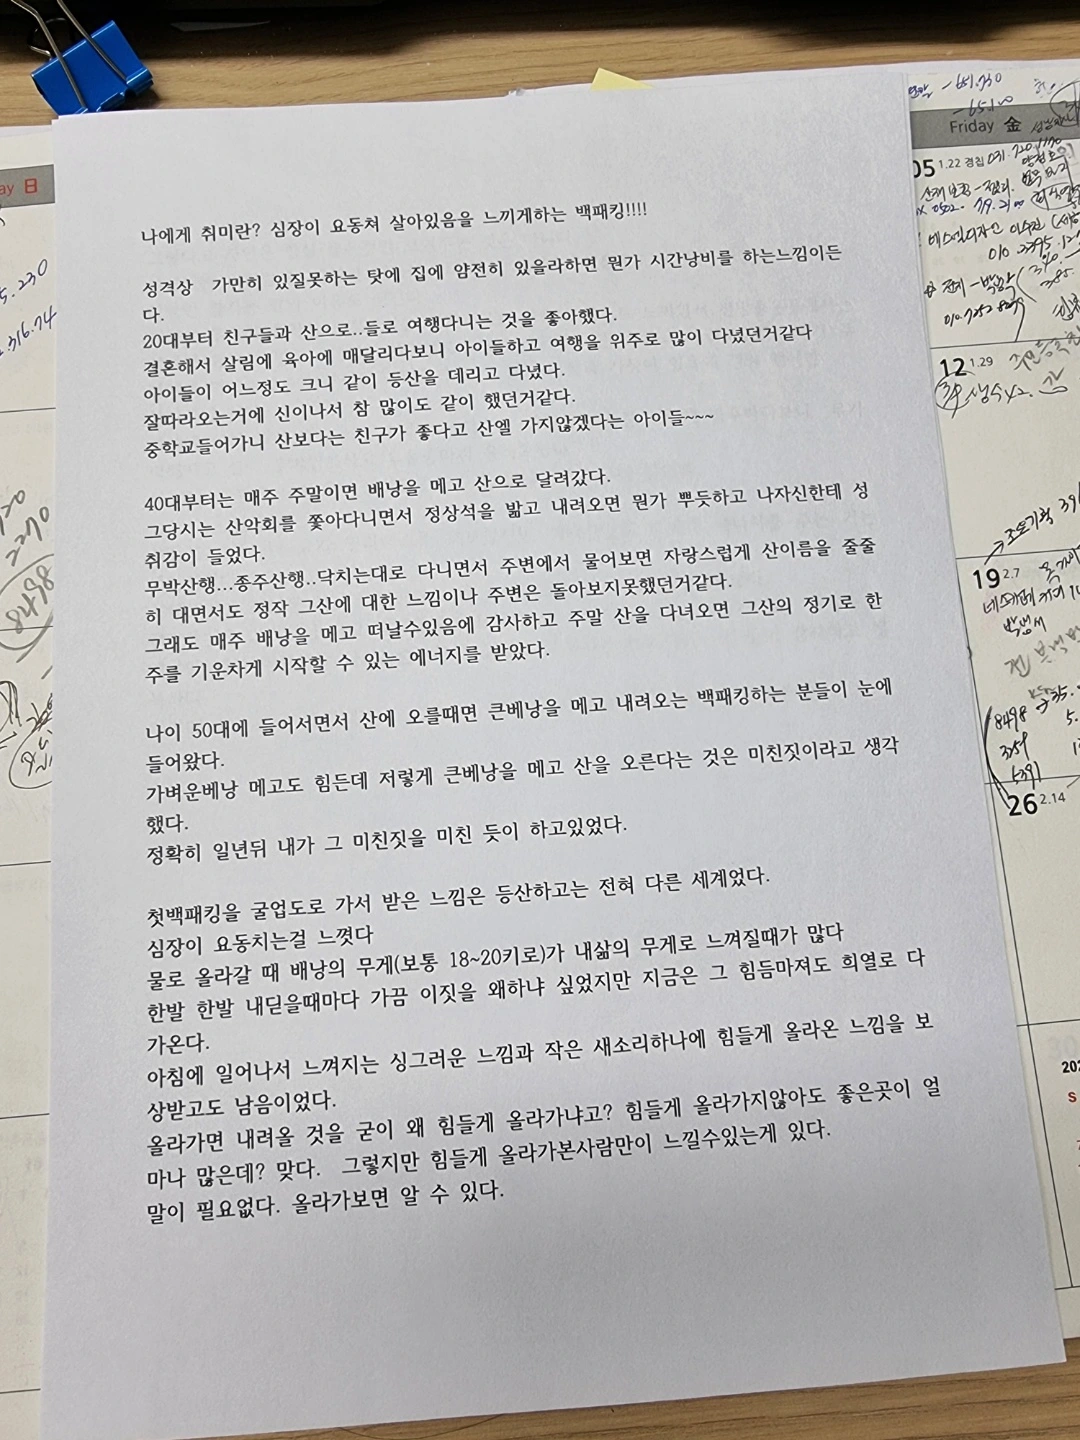 나에게 취미란? 심장이 요동쳐 살아있음을 느끼게하는 백패킹!!!!
성격상 가만히 있질못하는 탓에 집에 얌전히 있을라하면 뭔가 시간낭비를 하는느낌이든
다.
20대부터 친구들과 산으로..들로 여행다니는 것을 좋아했다.
결혼해서 살림에 육아에 매달리다보니 아이들하고 여행을 위주로 많이 다녔던거같다
아이들이 어느정도 크니 같이 등산을 데리고 다녔다.
잘따라오는거에 신이나서 참 많이도 같이 했던거같다.
중학교들어가니 산보다는 친구가 좋다고 산엘 가지않겠다는 아이들~~~
40대부터는 매주 주말이면 배낭을 메고 산으로 달려갔다.
그당시는 산악회를 쫓아다니면서 정상석을 밟고 내려오면 뭔가 뿌듯하고 나자신한테 성
취감이 들었다.
무박산행...종주산행..닥치는대로 다니면서 주변에서 물어보면 자랑스럽게 산이름을 줄줄
히 대면서도 정작 그산에 대한 느낌이나 주변은 돌아보지못했던거같다.
그래도 매주 배낭을 메고 떠날수있음에 감사하고 주말 산을 다녀오면 그산의 정기로 한
주를 기운차게 시작할 수 있는 에너지를 받았다.
나이 50대에 들어서면서 산에 오를때면 큰베낭을 메고 내려오는 백패킹하는 분들이 눈에
들어왔다.
가벼운베낭 메고도 힘든데 저렇게 큰베낭을 메고 산을 오른다는 것은 미친짓이라고 생각
했다.
정확히 일년뒤 내가 그 미친짓을 미친 듯이 하고있었다.
첫백패킹을 굴업도로 가서 받은 느낌은 등산하고는 전혀 다른 세계었다.
심장이 요동치는걸 느꼇다
물로 올라갈 때 배낭의 무게(보통 18~20키로)가 내삶의 무게로 느껴질때가 많다
한발 한발 내딛을때마다 가끔 이짓을 왜하냐 싶었지만 지금은 그 힘듬마져도 희열로 다
가온다.
아침에 일어나서 느껴지는 싱그러운 느낌과 작은 새소리하나에 힘들게 올라온 느낌을 보
상받고도 남음이었다.
올라가면 내려올 것을 굳이 왜 힘들게 올라가냐고? 힘들게 올라가지않아도 좋은곳이 얼
마나 많은데? 맞다. 그렇지만 힘들게 올라가본사람만이 느낄수있는게 있다.
말이 필요없다. 올라가보면 알 수 있다.
ay 日
5.230
2270
8498
-651.730
Friday 金
05 1.22 경칩 031.720.1170
12 1.29
19 2.7
8498
3359
5391
26 2.14